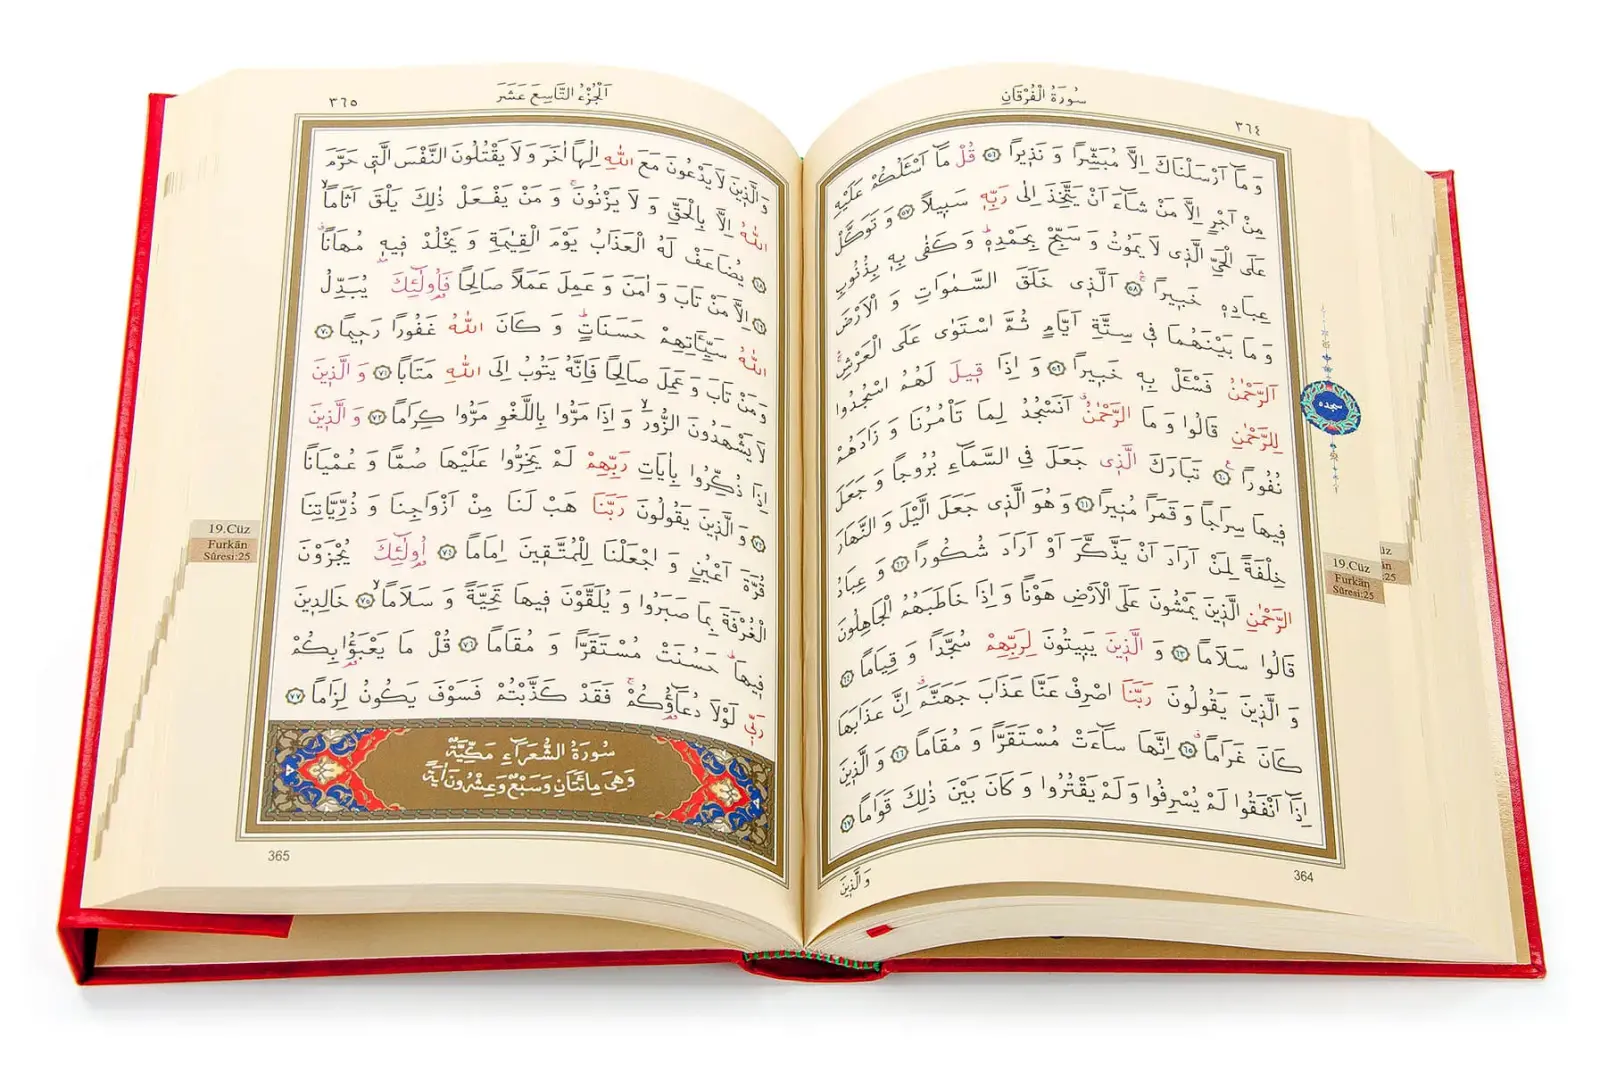 سُورَةُ الْفُرْقَانِ
٣٦٤
وَمَٓا اَرْسَلْنَاكَ اِلَّا مُبَشِّرًا وَ نَذٖيرًا ﴿٥٦﴾ قُلْ مَٓا اَسْـَٔلُكُمْ عَلَيْهِ
مِنْ اَجْرٍ اِلَّا مَنْ شَٓاءَ اَنْ يَتَّخِذَ اِلٰى رَبِّهٖ سَبٖيلًا ﴿٥٧﴾ وَ تَوَكَّلْ
عَلَى الْحَيِّ الَّذٖى لَا يَمُوتُ وَ سَبِّحْ بِحَمْدِهٖ وَ كَفٰى بِهٖ بِذُنُوبِ
عِبَادِهٖ خَبٖيرًا ﴿٥٨﴾ اَلَّذٖى خَلَقَ السَّمٰوَاتِ وَ الْاَرْضَ
وَ مَا بَيْنَهُمَا فٖى سِتَّةِ اَيَّامٍ ثُمَّ اسْتَوٰى عَلَى الْعَرْشِ
اَلرَّحْمٰنُ فَسْـَٔلْ بِهٖ خَبٖيرًا ﴿٥٩﴾ وَ اِذَا قٖيلَ لَهُمُ اسْجُدُوا
لِلرَّحْمٰنِ قَالُوا وَ مَا الرَّحْمٰنُ اَنَسْجُدُ لِمَا تَاْمُرُنَا وَ زَادَهُمْ
نُفُورًا ﴿٦٠﴾ تَبَارَكَ الَّذٖى جَعَلَ فِى السَّمَٓاءِ بُرُوجًا وَ جَعَلَ
فٖيهَا سِرَاجًا وَ قَمَرًا مُنٖيرًا ﴿٦١﴾ وَ هُوَ الَّذٖى جَعَلَ الَّيْلَ وَ النَّهَارَ
خِلْفَةً لِمَنْ اَرَادَ اَنْ يَذَّكَّرَ اَوْ اَرَادَ شُكُورًا ﴿٦٢﴾ وَ عِبَادُ
الرَّحْمٰنِ الَّذٖينَ يَمْشُونَ عَلَى الْاَرْضِ هَوْنًا وَ اِذَا خَاطَبَهُمُ الْجَاهِلُونَ
قَالُوا سَلَامًا ﴿٦٣﴾ وَ الَّذٖينَ يَبٖيتُونَ لِرَبِّهِمْ سُجَّدًا وَ قِيَامًا ﴿٦٤﴾
وَ الَّذٖينَ يَقُولُونَ رَبَّنَا اصْرِفْ عَنَّا عَذَابَ جَهَنَّمَ اِنَّ عَذَابَهَا
كَانَ غَرَامًا ﴿٦٥﴾ اِنَّهَا سَٓاءَتْ مُسْتَقَرًّا وَ مُقَامًا ﴿٦٦﴾ وَ الَّذٖينَ
اِذَٓا اَنْفَقُوا لَمْ يُسْرِفُوا وَ لَمْ يَقْتُرُوا وَ كَانَ بَيْنَ ذٰلِكَ قَوَامًا ﴿٦٧﴾
وَ الَّذٖينَ
364
سجده
19.Cüz
Furkân
Sûresi:25
الْجُزْءُ التَّاسِعَ عَشَرَ
٣٦٥
وَ الَّذٖينَ لَا يَدْعُونَ مَعَ اللّٰهِ اِلٰهًا اٰخَرَ وَ لَا يَقْتُلُونَ النَّفْسَ الَّتٖى حَرَّمَ
اللّٰهُ اِلَّا بِالْحَقِّ وَ لَا يَزْنُونَ وَ مَنْ يَفْعَلْ ذٰلِكَ يَلْقَ اَثَامًا
﴿٦٨﴾ يُضَاعَفْ لَهُ الْعَذَابُ يَوْمَ الْقِيٰمَةِ وَ يَخْلُدْ فٖيهٖ مُهَانًا
﴿٦٩﴾ اِلَّا مَنْ تَابَ وَ اٰمَنَ وَ عَمِلَ عَمَلًا صَالِحًا فَاُولٰٓئِكَ يُبَدِّلُ
اللّٰهُ سَيِّـَٔاتِهِمْ حَسَنَاتٍ وَ كَانَ اللّٰهُ غَفُورًا رَحٖيمًا ﴿٧٠﴾
وَ مَنْ تَابَ وَ عَمِلَ صَالِحًا فَاِنَّهُ يَتُوبُ اِلَى اللّٰهِ مَتَابًا ﴿٧١﴾ وَ الَّذٖينَ
لَا يَشْهَدُونَ الزُّورَ وَ اِذَا مَرُّوا بِاللَّغْوِ مَرُّوا كِرَامًا ﴿٧٢﴾ وَ الَّذٖينَ
اِذَا ذُكِّرُوا بِاٰيَاتِ رَبِّهِمْ لَمْ يَخِرُّوا عَلَيْهَا صُمًّا وَ عُمْيَانًا
﴿٧٣﴾ وَ الَّذٖينَ يَقُولُونَ رَبَّنَا هَبْ لَنَا مِنْ اَزْوَاجِنَا وَ ذُرِّيَّاتِنَا
قُرَّةَ اَعْيُنٍ وَ اجْعَلْنَا لِلْمُتَّقٖينَ اِمَامًا ﴿٧٤﴾ اُولٰٓئِكَ يُجْزَوْنَ
الْغُرْفَةَ بِمَا صَبَرُوا وَ يُلَقَّوْنَ فٖيهَا تَحِيَّةً وَ سَلَامًا ﴿٧٥﴾ خَالِدٖينَ
فٖيهَا حَسُنَتْ مُسْتَقَرًّا وَ مُقَامًا ﴿٧٦﴾ قُلْ مَا يَعْبَؤُ۬ا بِكُمْ
رَبّٖى لَوْلَا دُعَٓاؤُ۬كُمْ فَقَدْ كَذَّبْتُمْ فَسَوْفَ يَكُونُ لِزَامًا ﴿٧٧﴾
سُورَةُ الشُّعَرَٓاءِ مَكِّيَّةٌ
وَهِىَ مِائَتَانِ وَسَبْعٌ وَعِشْرُونَ اٰيَةً
365
19.Cüz
Furkân
Sûresi:25